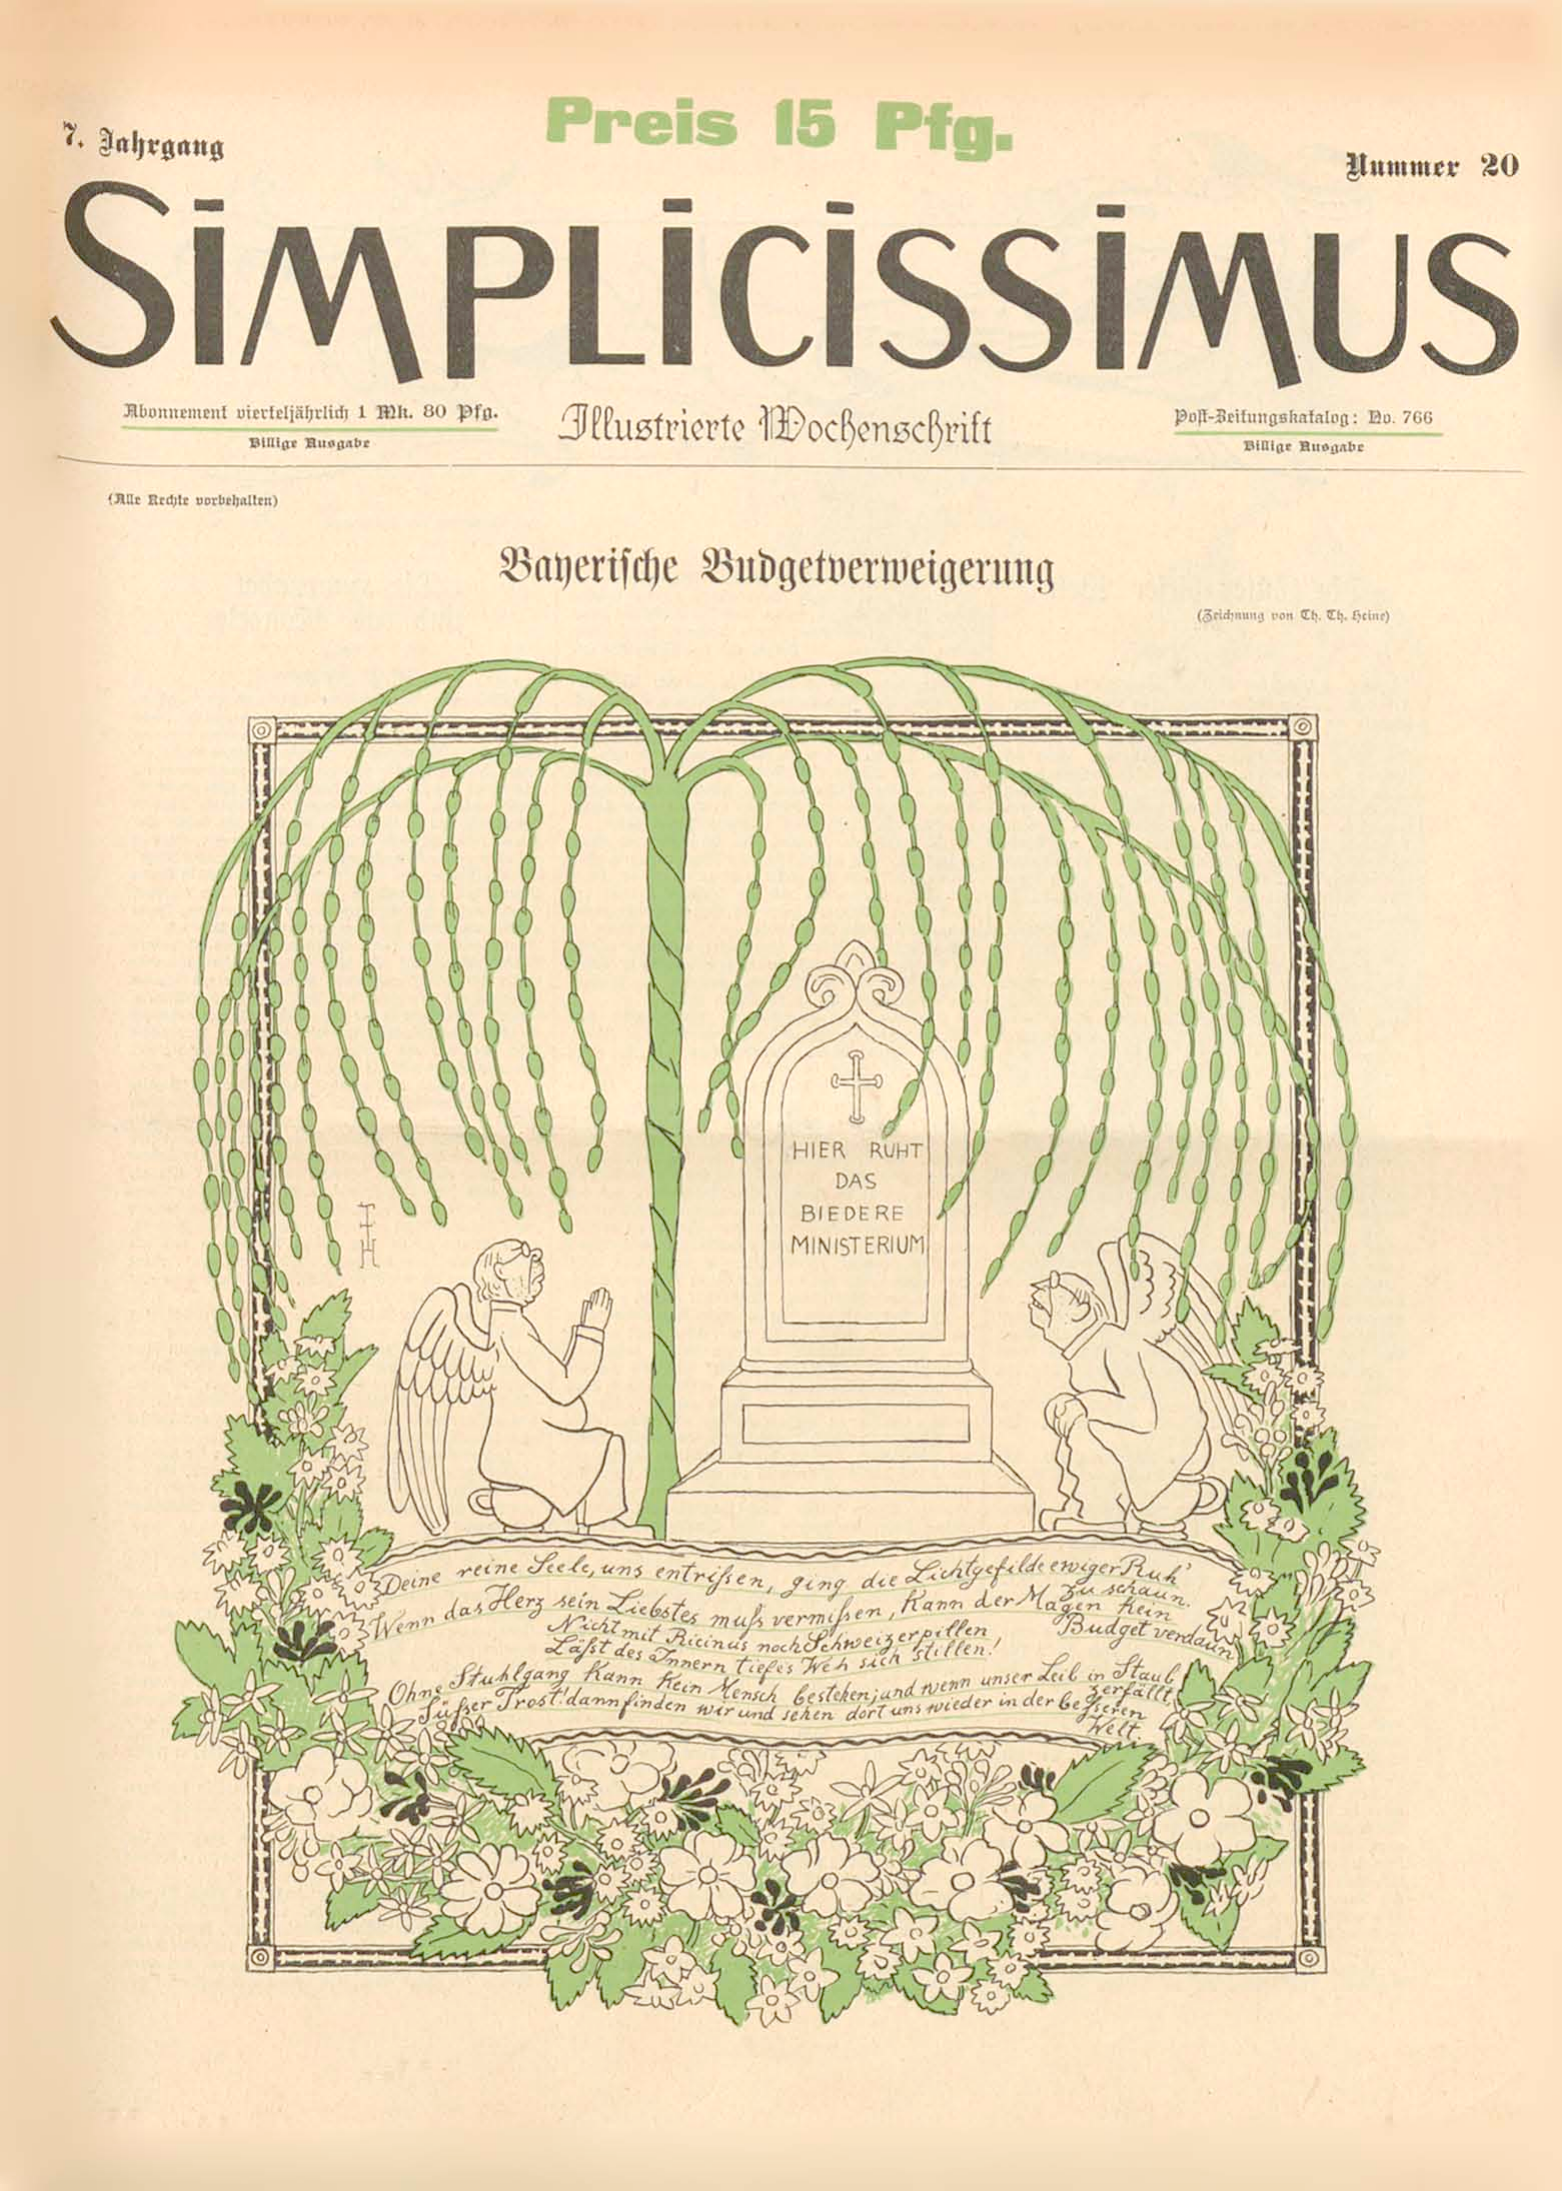 Preis 15 Pfg.
7. Jahrgang
Nummer 20
SiMPLiCiSSiMUS
Abonnement vierteljährlich 1 Mk. 80 Pfg.
Billige Ausgabe
Illustrierte Wochenschrift
Post-Zeitungskatalog: No. 766
Billige Ausgabe
(Alle Rechte vorbehalten)
Bayerische Budgetverweigerung
(Zeichnung von Th. Th. Heine)
HIER RUHT
DAS
BIEDERE
MINISTERIUM
TTH
Deine reine Seele, uns entrissen, ging die Lichtgefilde ewiger Ruh'
zu schaun.
Wenn das Herz sein Liebstes muss vermissen, kann der Magen kein
Budget verdaun
Nicht mit Ricinus noch Schweizerpillen
Läßt des Innern tiefes Weh sich stillen!
Ohne Stuhlgang kann kein Mensch bestehen; und wenn unser Leib in Staub
zerfällt,
Süßer Trost! dann finden wir und sehen dort uns wieder in der besseren
Welt.